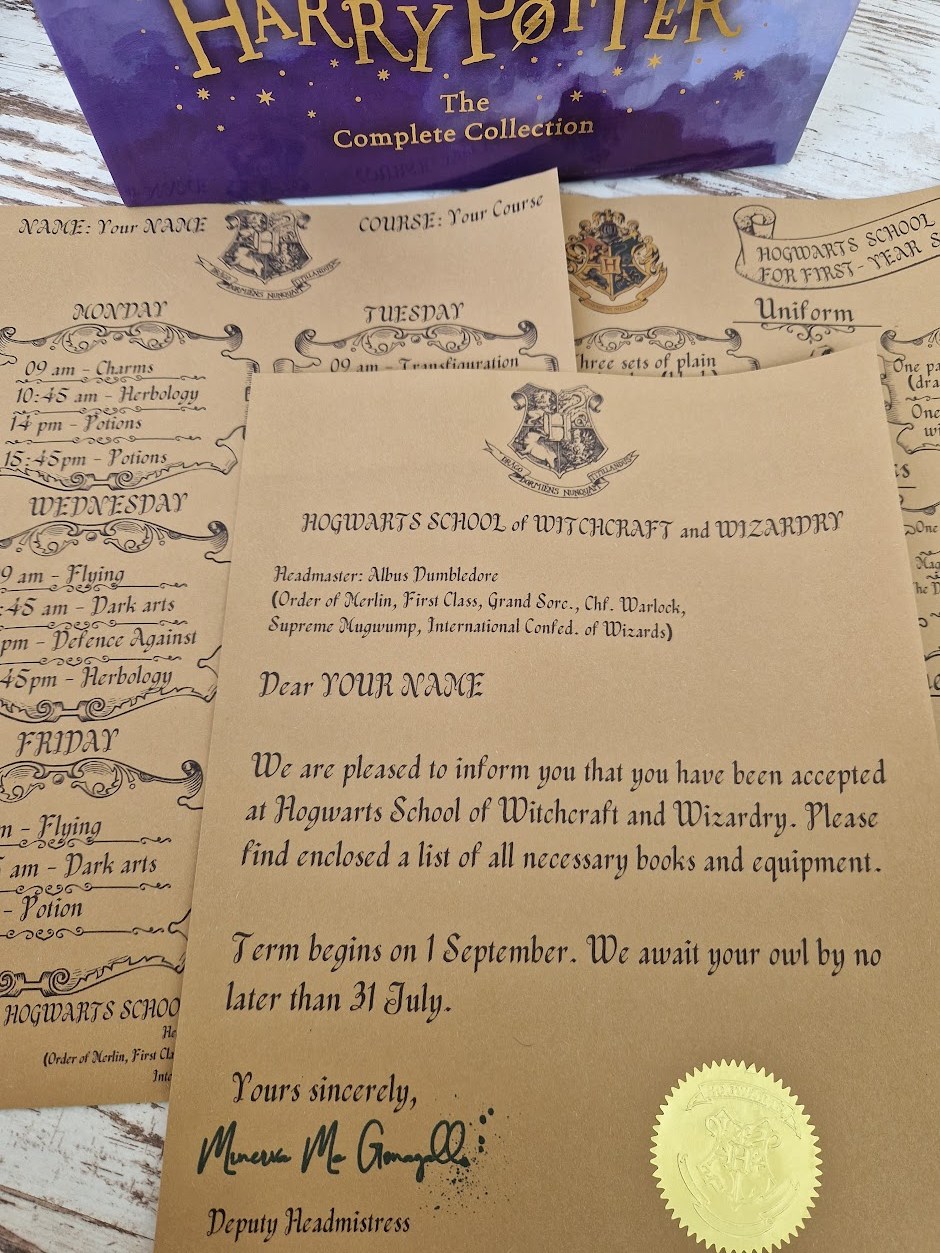 HARRY POTTER
The
Complete Collection
NAME: Your NAME
COURSE: Your Course
DRACO DORMIENS NUNQUAM TITILLANDUS
MONDAY
09 am - Charms
10:45 am - Herbology
14 pm - Potions
15:45pm - Potions
TUESDAY
09 am - Transfiguration
WEDNESDAY
9 am - Flying
:45 am - Dark arts
pm - Defence Against
45pm - Herbology
FRIDAY
am - Dark arts
- Flying
- Potion
HOGWARTS SCHOO
(Order of Merlin, First Cla
HOGWARTS SCHOOL
FOR FIRST-YEAR S
Uniform
hree sets of plain
One pa
(dra
One
wi
One
HOGWARTS SCHOOL of WITCHCRAFT and WIZARDRY
Headmaster: Albus Dumbledore
(Order of Merlin, First Class, Grand Sorc., Chf. Warlock,
Supreme Mugwump, International Confed. of Wizards)
Dear YOUR NAME
We are pleased to inform you that you have been accepted
at Hogwarts School of Witchcraft and Wizardry. Please
find enclosed a list of all necessary books and equipment.
Term begins on 1 September. We await your owl by no
later than 31 July.
Yours sincerely,
Minerva Mc Gonagall
Deputy Headmistress
HOGWARTS